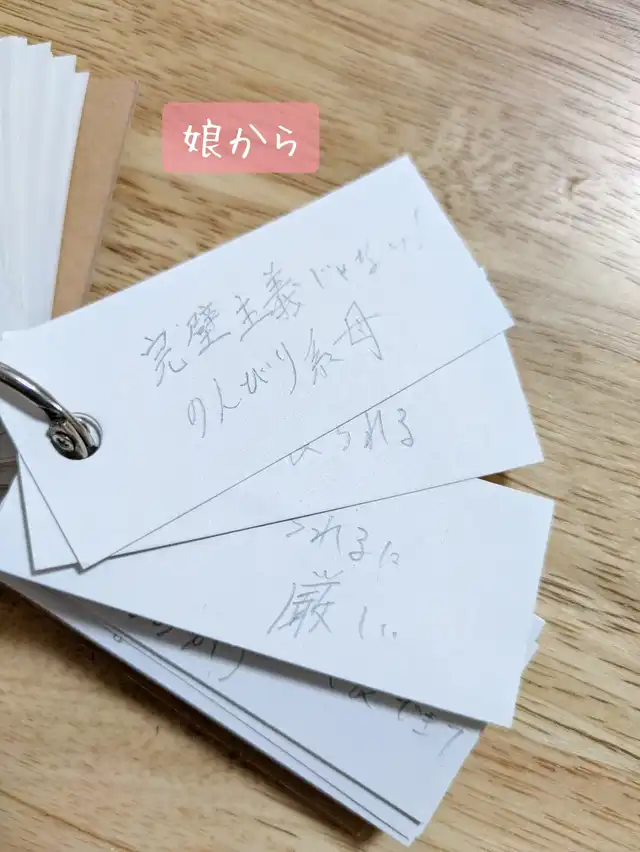 娘から
完璧主義じゃない!
のんびり系母
られる
れるに
厳しい